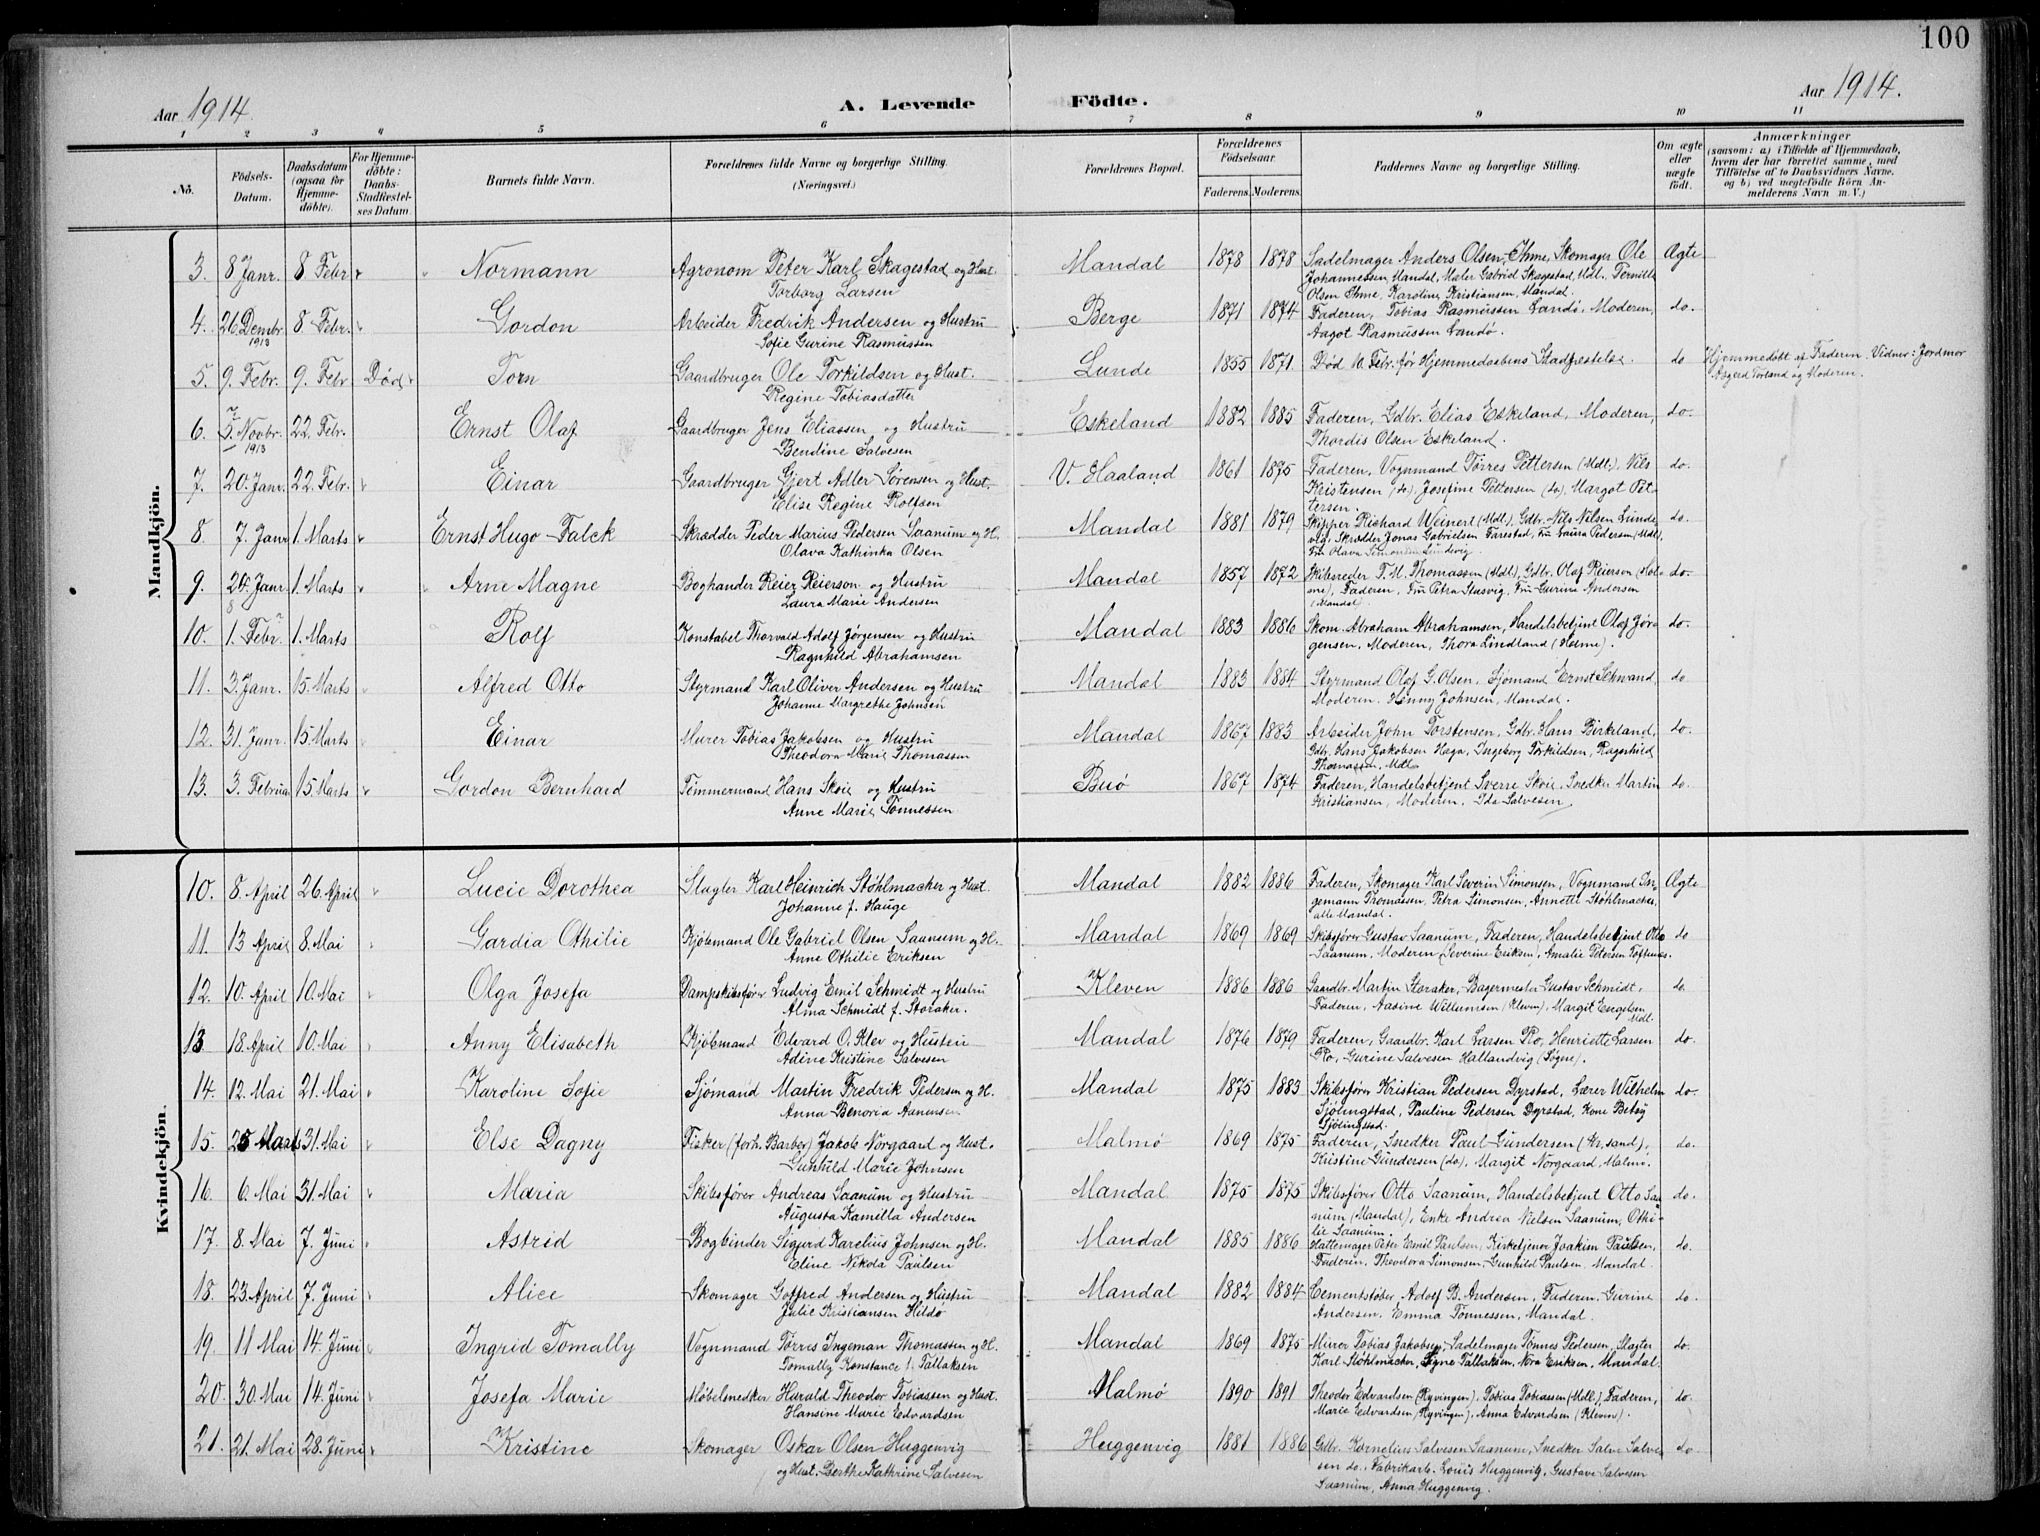 100
Aar 1914.
A. Levende
Födte.
Aar 1914.
1 2 3 4 5 6 7 8 9 10 11
Nô.
Födsels-Datum.
Daabsdatum (ogsaa for Hjemmedöbte).
For Hjemmedöbte: Daabs-Stadfæstelses Datum
Barnets fulde Navn.
Forældrenes fulde Navne og borgerlige Stilling.
(Næringsvei.)
Forældrenes Bopæl.
Forældrenes Födselsaar.
Faderens. Moderens.
Faddernes Navne og borgerlige Stilling.
Om ægte eller uægte födt.
Anmærkninger
(saasom: a.) i Tilfælde af Hjemmedaab,
hvem der har forrettet samme, med
Tilföielse af to Daabsvidners Navne,
og b) ved uegtefödte Börn Anmelderens Navn m. V.)
Mandkjön.
3. 8 Janr. 8 Febr Normann Agronom Peter Karl Skagestad og Hust. Mandal 1878 1878 Sadelmager Anders Olsen, Ihme, Skomager Ole Ægte
Torborg Larsen Johannessen, Mandal, Maler Gabriel Skagestad, Mdl. Pernille
Olsen Ihme, Karoline Kristiansen, Mandal.
4. 26. Dembr. 8 Febr. Gordon Arbeider Fredrik Andersen og Hustru Berge 1871 1874 Faderen, Tobias Rasmussen Landö, Moderen, do.
1913 Sofie Gurine Rasmussen Aagot Rasmussen Landö.
5. 9. Febr. 9. Febr Död Torn Gaardbruger Ole Torkildsen og Hust. Lunde 1855 1871. Död 10. Febr. før Hjemmedaabens Stadfæstelse. do Hjemmedöbt af Faderen. Vidner: Jordmor
Regine Tobiasdatter Asgerd Torland og Moderen.
6. 5. Novbr. 22 Febr. Ernst Olaf Gaardbruger Jens Eliassen og Hustru Eskeland 1882 1885 Faderen, Gdbr. Elias Eskeland, Moderen, do.
7 1913 Bendine Salvesen Thordis Olsen Eskeland.
7. 20. Janr. 22. Febr. Einar Gaardbruger Gjert Adler Sørensen og Hust. V. Haaland 1861 1875 Faderen, Vognmand Törres Pettersen (Mdl.), Nils do.
Elise Regine Rolfsen Kristensen (do), Josefine Pettersen (do), Margot Pet-
tersen.
8 7. Janr 1. Marts Ernst Hugo Falck Skrædder Peder Marius Pedersen Saanum og H. Mandal 1881 1879 Skipper Richard Weinert (Mdl.), Gdbr. Nils Nilsen Lunde do.
Olava Kathinka Olsen vig, Skrædder Jonas Gabrielsen Farestad, Fru Laura Pedersen (Mdl),
Fru Olava Simonsen Lundevig.
9. 24. Janr. 1. Marts Arne Magne Boghander Reier Reierson og Hustru Mandal 1857 1872 Skibsreder T. M. Thomassen (Mdl), Gdbr. Olaf Reiersen (Hol- do.
Laura Marie Andersen me), Faderen, Fru Petra Stusvig, Fru Gurine Andersen
(Mandal).
10. 1. Febr. 1. Marts Rolf Konstabel Thorvald Adolf Jørgensen og Hustru Mandal 1883 1886 Skom. Abraham Abrahamsen, Handelsbetjent Olaf Jør- do.
Ragnhild Abrahamsen gensen, Moderen, Thora Lindland (Holme).
11. 3. Janr. 15. Marts Alfred Otto Styrmand Karl Oliver Andersen og Hustru Mandal 1883 1884 Styrmand Olaf G. Olsen, Sjömand Ernst Schwand, do
Johanne Margrethe Johnsen Moderen. Henny Johnsen, Mandal.
12. 31. Janr. 15. Marts Einar Murer Tobias Jakobsen og Hustru Mandal 1867 1883 Arbeider John Torstensen, Gdbr. Hans Birkeland, do.
Theodora Marie Thomassen Gdbr. Hans Jakobsen Haga, Ingeborg Torkildsen, Ragnhild
Thomassen, Mdl.
13. 3. Februar 15. Marts Gordon Bernhard Tømmermand Hans Skoie og Hustru Buö 1867 1874 Faderen, Handelsbetjent Sverre Skoie, Snedker Martin do.
Anne Marie Tönnessen Kristiansen, Moderen, Ida Salvesen
Kvindekjön.
10. 8. April 26. April Lucie Dorothea Slagter Karl Heinrich Støhlmacher og Hust. Mandal 1882 1886 Faderen, Skomager Karl Severin Simonsen, Vognmand In- Ægte
Johanne f. Hauge gemann Thomassen, Petra Simonsen, Annette Støhlmacher,
alle Mandal.
11. 13 April 8. Mai Gardia Othilie Kjöbmand Ole Gabriel Olsen Saanum og H. Mandal 1869 1869 Skibsfører Gustav Saanum, Faderen, Handelsbetjent Otto do
Anne Othilie Eriksen Saanum, Moderen, Severine Eriksen, Amalie Petersen Toftnes.
12. 10. April 10. Mai Olga Josefa Dampskibsfører Ludvig Emil Schmidt og Hustru Kleven 1886 1886 Gaardbr. Martin Storaker, Bagermester Gustav Schmidt, do.
Alma Schmidt f. Storaker. Faderen, Nadine Willumsen (Kleven), Margit Engelsen
Mdl.
13 18. April 10. Mai Anny Elisabeth Kjöbmand Edvard O. Klev og Hustru Mandal 1876 1879 Faderen, Gaardbr. Karl Larsen Ro, Henriette Larsen do.
Adine Kristine Salvesen Ro, Gurine Salvesen Hallandvig (Søgne).
14. 12. Mai 21. Mai Karoline Sofie Sjömand Martin Fredrik Pedersen og H. Mandal 1875 1883 Skibsfører Kristian Pedersen Dyrstad, Lærer Wilhelm do.
Anna Benoria Aanensen Sjölingstad, Pauline Pedersen Dyrstad, Kone Betsy
Sjölingstad.
15. 25 Marts 31. Mai Else Dagny Fisker (forh. Barber) Jakob Norgaard og Hust. Malmö 1869 1875 Faderen, Snedker Paul Gundersen (Kr.sand), do.
Gunhild Marie Johnsen Kristine Gundersen (do), Margit Norgaard, Malmö.
16. 6. Mai 31. Mai Maria Skibsfører Andreas Saanum og Hustru Mandal 1875 1875 Skibsfører Otto Saanum, Handelsbetjent Otto Saa- do.
Augusta Kamilla Andersen num (Mandal), Enke Andrea Nielsen Saanum, Othi-
lie Saanum.
17. 8. Mai 7. Juni Astrid Bogbinder Sigurd Karelius Johnsen og H. Mandal 1885 1886 Hattemager Peter Emil Paulsen, Kirketjener Joakim Paulsen, do.
Eline Nikola Paulsen Faderen, Theodora Simonsen, Gunhild Paulsen, Mandal.
18. 23. April 7. Juni Alice Skomager Gotfred Andersen og Hustru Mandal 1882 1884 Cementstøber Adolf B. Andersen, Faderen, Gurine do.
Julie Kristiansen Hildö Andersen, Emma Tönnessen, Mandal.
19. 11 Mai 14. Juni Ingrid Tomally Vognmand Törris Ingeman Thomassen og H. Mandal 1869 1875 Murer Tobias Jakobsen, Sadelmager Tönnes Pedersen, Slagter do.
Tomally Konstance f. Tallaksen Karl Støhlmacher, Signe Tallaksen, Nora Eriksen, Mandal.
20. 30. Mai 14. Juni Josefa Marie Møbelsnedker Harald Theodor Tobiassen og Hust. Malmö 1890 1891 Theodor Edvardsen (Ryvingen), Tobias Tobiassen (Mdl), Faderen, do.
Hansine Marie Edvardsen Marie Edvardsen (Ryvingen), Anna Edvardsen (Kleven).
21. 21. Mai 28. Juni Kristine Skomager Oskar Olsen Huggenvig Huggenvig 1881 1886 Gdbr. Kornelius Salvesen Saanum, Snedker Salve Salve- do.
og Hust. Berthe Kathrine Salvesen sen do., Fabrikarb. Louis Huggenvig, Gustave Salvesen
Saanum, Anna Huggenvig.